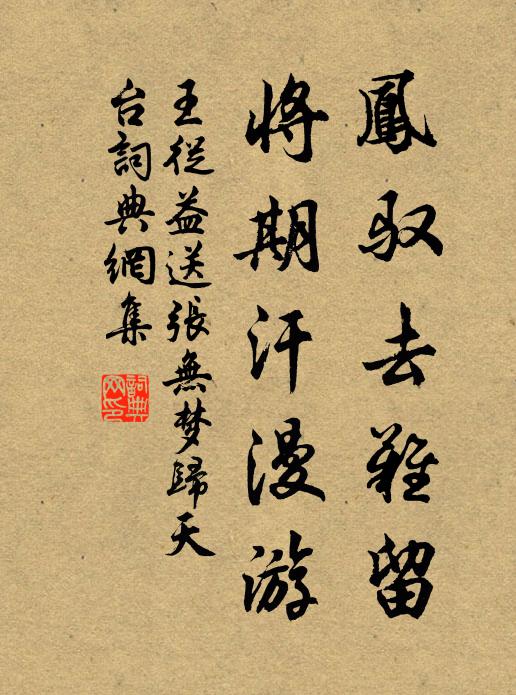 鳳驭去難留
將期汗漫游
王從益送張無梦歸天
台詞典網集
詞典
网印